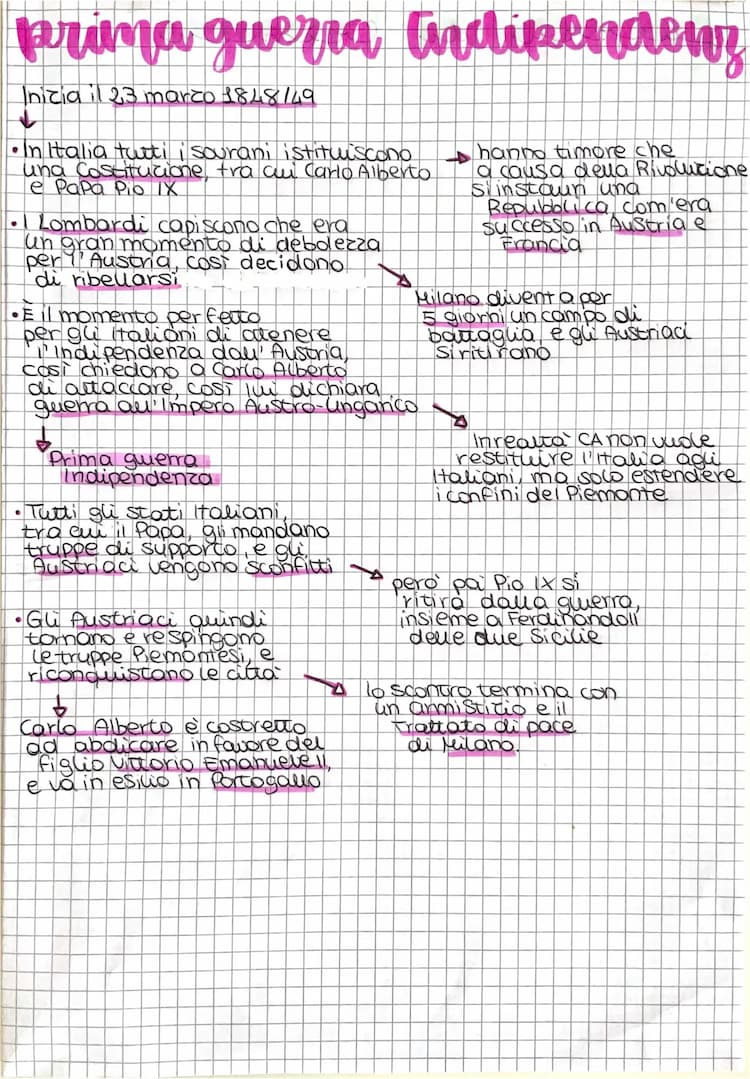 prima guerra Indipendenz
Inizia il 23 marzo 1848/49
• In Italia tutti i sovrani istituiscono
una Costituzione, tra cui Carlo Alberto
e Papa Pio IX
hanno timore che
a causa della Rivoluzione
si instauri una
Repubblica, com'era
successo in Austria e
Francia
• I Lombardi capiscono che era
un gran momento di debolezza
per l'Austria, così decidono
di ribellarsi
Milano diventa per
5 giorni un campo di
battaglia, e gli Austriaci
si ritirano
• È il momento perfetto
per gli italiani di otenere
l'Indipendenza dall'Austria,
così chiedono a Carlo Alberto
di attaccare, così lui dichiara
guerra all'Impero Austro-Ungarico
In realtà CA non vuole
restituire l'Italia agli
Italiani, ma solo estendere
i confini del Piemonte
Prima guerra
Indipendenza
• Tutti gli stati Italiani,
tra cui il Papa, gli mandano
truppe di supporto, e gli
Austriaci vengono sconfitti
però pa Pio IX si
ritira dalla guerra,
insieme a Ferdinando II
delle due Sicilie
• Gli Austriaci quindi
tornano e respingono
le truppe Piemontesi, e
riconquistano le città
lo scontro termina con
un armistizio e il
Trattato di pace
di Milano.
Carlo Alberto è costretto
ad abdicare in favore del
figlio Vittorio Emanuele II,
e va in esilio in Portogallo